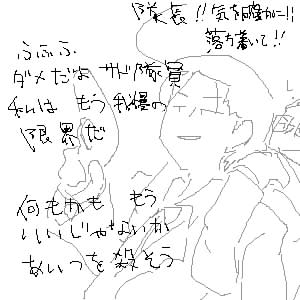 隊長!!気を確かに!!
落ち着いて!!
ふふふ
ダメだよ サド隊員
私は もう 我慢の
限界だ
何もかも もう
いいじゃないか
あいつを殺そう